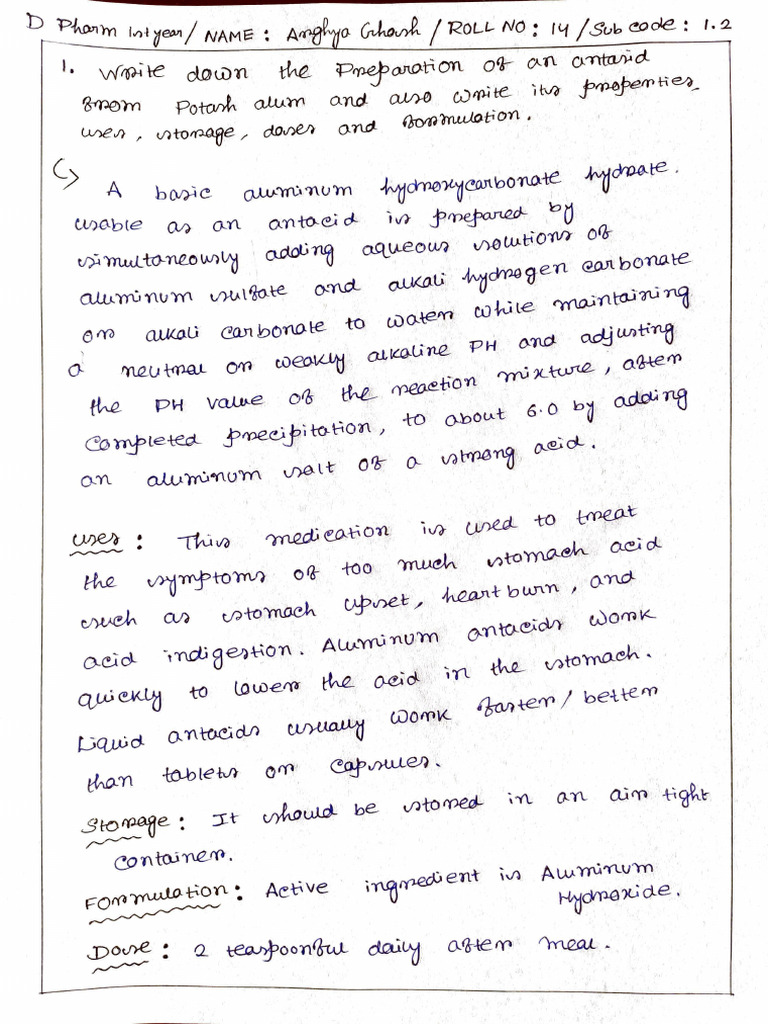 D Pharm 1st year / NAME : Arghya Ghosh / ROLL NO : 14 / Sub code : 1.2
1. Write down the Preparation of an antasid
from Potash alum and also write its properties,
uses, storage, doses and formulation.
A basic aluminum hydroxycarbonate hydrate.
usable as an antacid is prepared by
simultaneously adding aqueous solutions of
aluminum sulfate and alkali hydrogen carbonate
or alkali carbonate to water while maintaining
a neutral or weakly alkaline PH and adjusting
the PH value of the reaction mixture, after
completed precipitation, to about 6.0 by adding
an aluminum salt of a strong acid.
uses : This medication is used to treat
the symptoms of too much stomach acid
such as stomach upset, heartburn, and
acid indigestion. Aluminum antacids work
quickly to lower the acid in the stomach.
Liquid antacids usually work faster/better
than tablets or capsules.
Storage : It should be stored in an air tight
container.
Formulation : Active ingredient is Aluminum
Hydroxide.
Dose : 2 teaspoonful daily after meal.